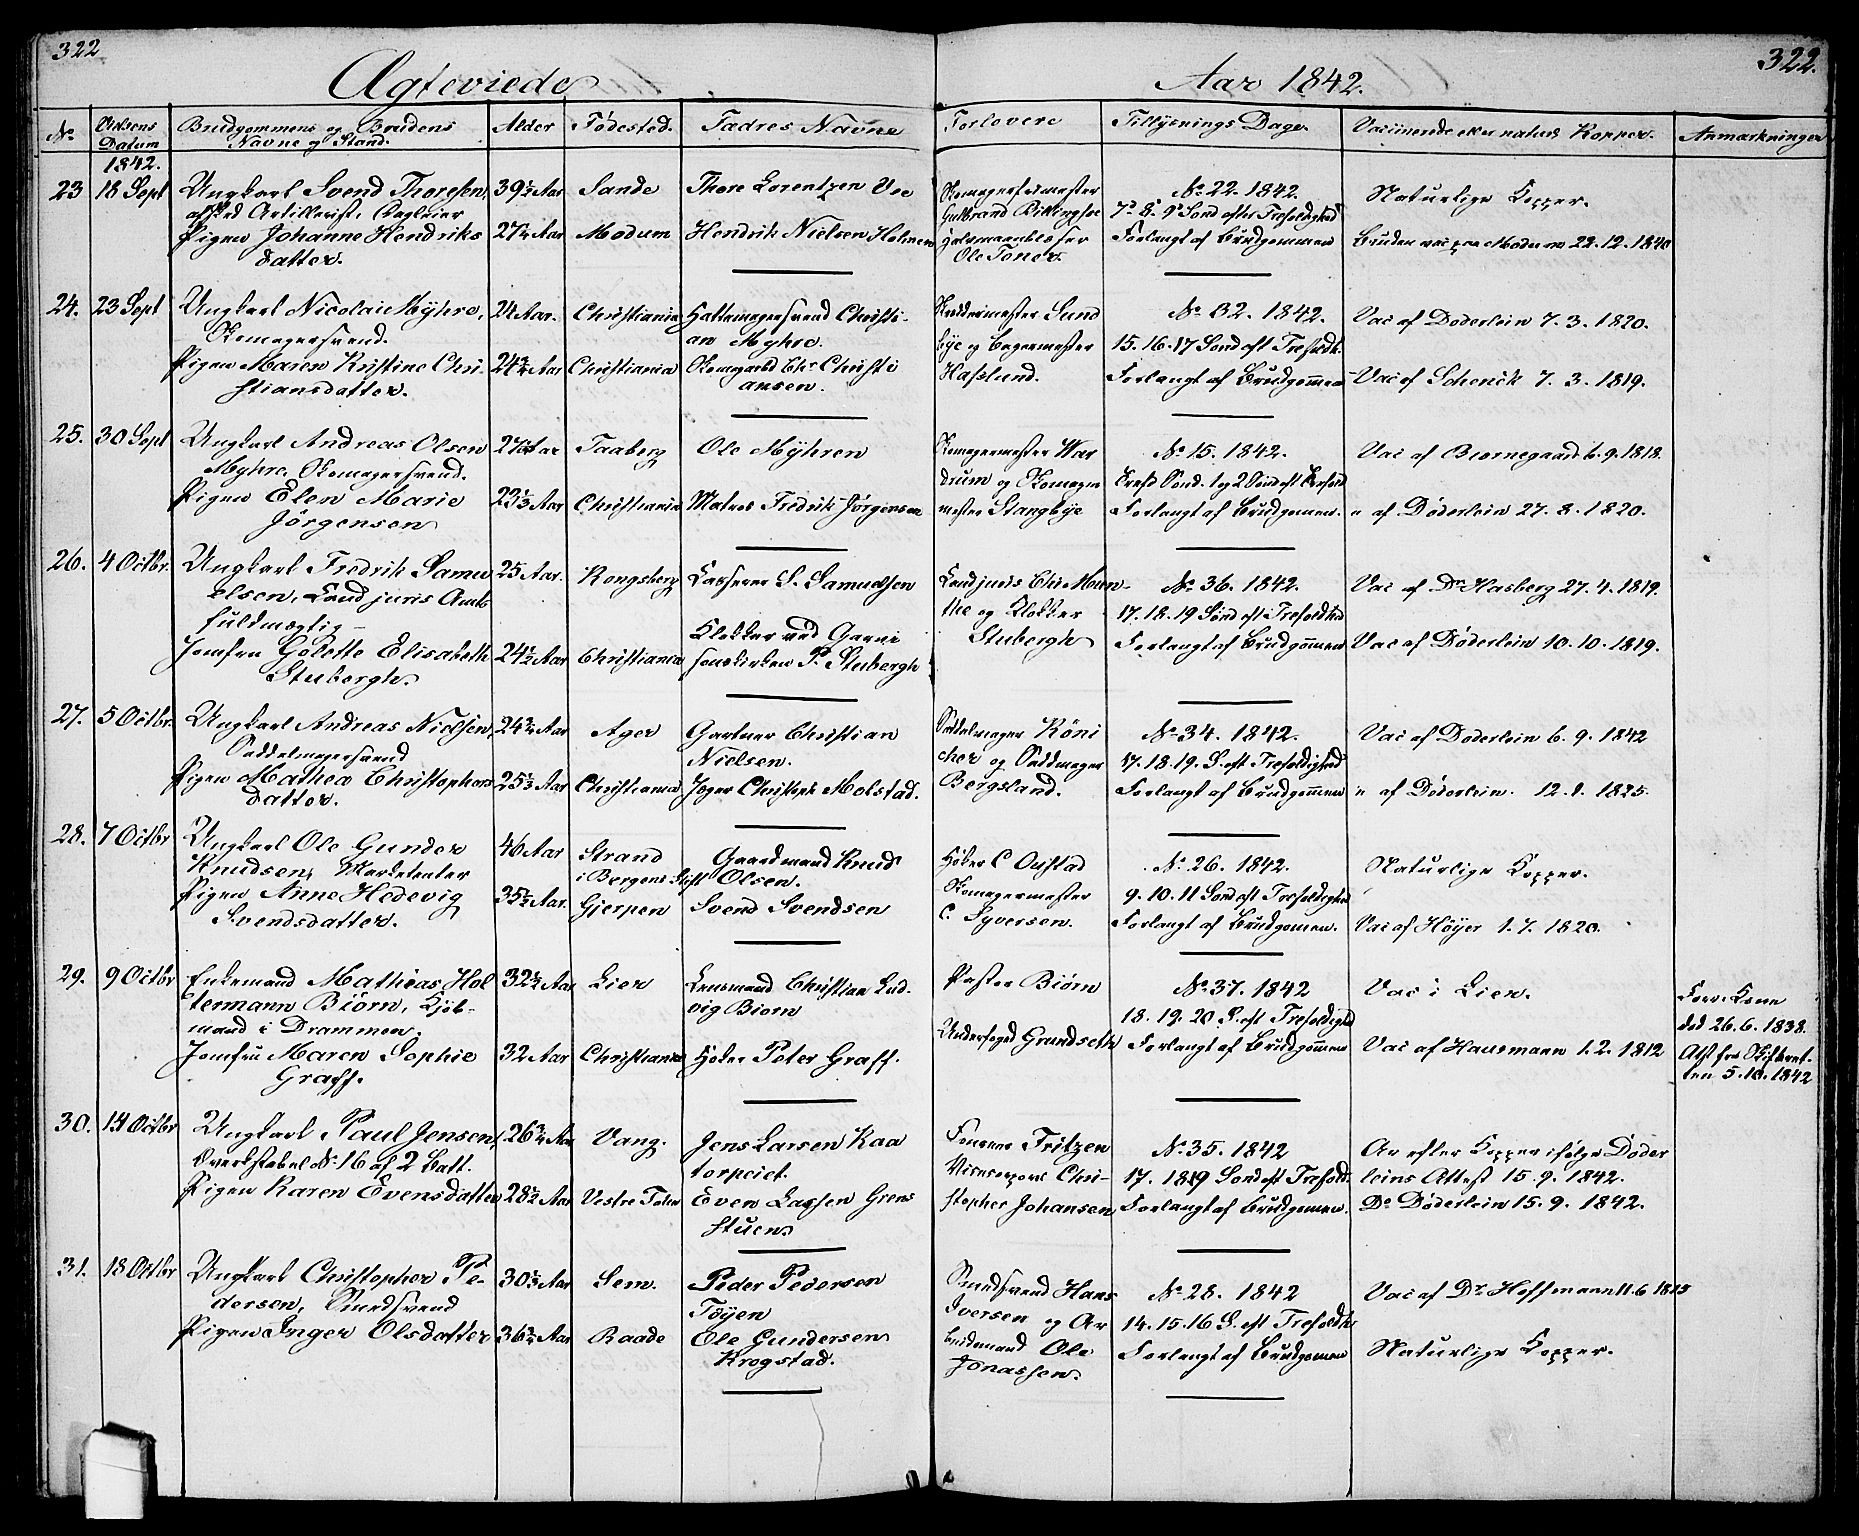 322
322.
Ægteviede
Aar 1842.
No
Vielsens Datum
Brudgommens og Brudens Navne og Stand.
Alder
Födested.
Fadres Navne
Forlovere
Tillysnings Dage.
Vaccinerede eller naturl. Kopper.
Anmærkninger
1842.
23 18 Sept Ungkarl Svend Thoresen, 39½ Aar Sande Thore Lorentzen Vee
afsked Artillerist,
Pigen Johanne Hendriks 27½ Aar Modum Hendrik Nielsen Holmen
datter.
Skomagermester
Gulbrand
Ole Toner.
No 22. 1842.
7de 8de 9de Sönd efter Trefoldighed
Forlangt af Brudgommen
Naturlige Kopper.
Bruden vac paa Modum 22. 12. 1840
24. 23 Sept Ungkarl Nicolai Myhre, 24 Aar. Christiania Hattemagersvend Christi-
Skomagersvend. an Myhre.
Pigen Maren Kristine Chri- 24¾ Aar Christiania Skomagersv Chr. Christi
stiansdatter. ansen.
Skreddermester Sund
bye og Bagermester
Haslund.
No 32. 1842.
15. 16. 17 Sönd eft Trefoldh.
Forlangt af Brudgommen
Vac af Döderlein 7. 3. 1820.
Vac af Schenck 7. 3. 1819.
25. 30 Sept Ungkarl Andreas Olsen 27 Aar Faaberg Ole Myhren
Myhre, Skomagersvend.
Pigen Elen Marie 23⅓ Aar Christiania Matros Fredrik Jörgensen
Jörgensen
Skomagermester War
drum og Skomager
mester Stangbye
No 15. 1842.
Trefs Sönd. 1 og 2 Sönd eft Trefold
Forlangt af Brudgommen.
Vac af Biornegaard 6. 9. 1818.
" af Döderlein 27. 8. 1820.
26. 4 Octbr. Ungkarl Fredrik Samu 25 Aar. Kongsberg Kasserer S. Samuelsen
elsen, Cand juris Amts
fuldmægtig -
Klokker ved Garni
Jomfru Golette Elisabeth 24½ Aar Christiania sonskirken P. Stubergh
Stubergh.
Cand juris Chr Mun-
the og Klokker
Stubergh
No 36. 1842.
17. 18. 19 Sönd eft Trefoldhed
Forlangt af Brudgommen
Vac af Dr Hasberg 27. 4. 1819.
Vac af Döderlein 10. 10. 1819.
27. 5 Octbr. Ungkarl Andreas Nielsen, 24¾ Aar Ager Gartner Christian
Saddelmagersvend Nielsen.
Pigen Mathea Christophers 25⅓ Aar Christiania Jæger Christoph Molstad.
datter.
Saddelmager Köni
cher og Saddmager
Bergsland.
No 34. 1842.
17. 18. 19. S. eft Trefoldighed
Forlangt af Brudgommen
Vac af Döderlein 6. 9. 1842
" af Döderlein. 12. 1. 1825.
28. 7 Octbr Ungkarl Ole Gunder 46 Aar Strand Gaardmand Knud
Knudsen, Marketenter i Bergens Stift Olsen.
Pigen Anne Hedevig 35½ Aar. Gjerpen Svend Svendsen
Svendsdatter.
Höker C Oustad
Skomagermester
C. Syversen.
No 26. 1842.
9. 10. 11 Sönd eft Trefoldighed
Forlangt af Brudgommen.
Naturlige Kopper.
Vac af Höyer 1. 7. 1820.
29. 9 Octbr Enkemand Mathias Hol 32½ Aar Lier Lensmand Christian Lud-
termann Biörn, Kjöb- vig Biorn
mand i Drammen.
Jomfru Maren Sophie 32 Aar Christiania Höker Peter Graff.
Graff.
Pastor Biörn
Underfoged Grundseth
No 37. 1842
18. 19. 20 S. eft Trefoldigh
Forlangt af Brudgommen
Vac i Lier.
Vac af Hausmann 1. 2. 1812
Forr. Kone
död 26. 6. 1838.
Atst fra Skifteret-
ten 5. 10. 1842
30. 14 Octbr Ungkarl Paul Jensen, 26¾ Aar Vang. Jens Larsen Kaa
No 16 af 2 Batt. torpeiet.
Pigen Karen Evensdatter 28½ Aar Vestre Toten Even Larsen Grens
stuen
Fourer Fritzen
Chri-
stopher Johansen
No 35. 1842
17. 18 19 Sönd eft Trefold.
Forlangt af Brudgommen.
Ar efter Kopper ifölge Döder
leins Attest 15. 9. 1842.
Do Döderlein 15. 9. 1842.
31. 18 Octbr Ungkarl Christopher Pe- 30⅓ Aar Sem. Peder Pedersen
dersen, Smedsvend Töyen
Pigen Inger Olsdatter 36¾ Aar Raade Ole Gundersen
Krogstad.
Smedsvend Hans
Iversen og Ar
beidsmand Ole
Jonassen.
No 28. 1842
14. 15. 16 S. eft Trefoldh
Forlangt af Brudgommen
Vac af Dr Hoffmann 11. 6 1815
Naturlige Kopper.